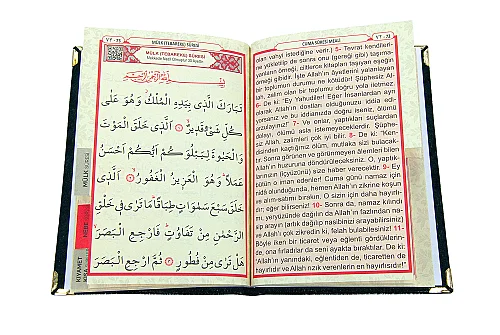 ٧٣ - 73
MÜLK (TEBAREKE) SÛRESİ
MÜLK (TEBAREKE) SÛRESİ
Mekkede Nazil Olmuştur 30 Âyettir.
بِسْمِ اللّٰهِ الرَّحْمٰنِ الرَّحِيمِ
تَبَارَكَ الَّذ۪ى بِيَدِهِ الْمُلْكُۘ وَهُوَ عَلٰى
كُلِّ شَىْءٍ قَد۪يرٌۙ ﴿١﴾ اَلَّذ۪ى خَلَقَ الْمَوْتَ
وَالْحَيٰوةَ لِيَبْلُوَكُمْ اَيُّكُمْ اَحْسَنُ
عَمَلًاۜ وَهُوَ الْعَز۪يزُ الْغَفُورُۙ ﴿٢﴾ اَلَّذ۪ى
خَلَقَ سَبْعَ سَمٰوَاتٍ طِبَاقًاۜ مَا تَرٰى ف۪ى خَلْقِ
الرَّحْمٰنِ مِنْ تَفَاوُتٍۜ فَارْجِعِ الْبَصَرَۙ
هَلْ تَرٰى مِنْ فُطُورٍ ﴿٣﴾ ثُمَّ ارْجِعِ الْبَصَرَ
MÜLK SÛRESİ
KIYAMET
CUMA SÛRESİ MEALİ
٧٢ - 72
olan vahyi istediğine verir.) 5- Tevrat kendileri-
ne yükletilip de sonra onu (gereği gibi) taşıma-
yanların örneği, ciltlerce kitapları taşıyan eşeğin
örneği gibidir. İşte Allah'ın âyetlerini yalanlayan
bir toplumun durumu ne kötüdür! Şüphesiz Al-
lah, zalim olan bir toplumu doğru yola iletmez.
6- De ki: "Ey Yahudiler! Eğer İnsanlardan ayrı
olarak Allah'ın dostları olduğunuzu iddia edi-
yorsanız ve bu iddianızda doğru iseniz, ölümü
arzulayınız!" 7- Ve onlar, yaptıkları suçlardan
dolayı, ölümü asla istemeyeceklerdir. Şüphe-
siz Allah, zalimleri çok iyi bilir. 8- De ki: "Ken-
disinden kaçtığınız ölüm, mutlaka sizi bulacak-
tır. Sonra görünen ve görünmeyen âlemleri bilen
Allah'ın huzuruna döndürüleceksiniz. O, yaptık-
larınızın (içyüzünü) size haber verecektir. 9- Ey
bütün o iman edenler! Cuma günü namaz için
nidâ olunduğunda, hemen Allah'ın zikrine koşun
ve alım-satımı bırakın. O sizin için daha hayırlı-
dır; eğer bilirseniz! 10- Sonra da, namaz kılındı
mı, yeryüzünde dağılın da Allah'ın fazlından na-
sip arayın (artık dağılıp nasibinizi arayabilirsiniz)
ve Allah'ı çok zikredin ki, felah bulabilesiniz! 11-
Böyle iken bir ticaret veya eğlenti gördüklerin-
de, ona fırladılar da seni ayakta bıraktılar. De ki:
"Allah'ın yanındaki, eğlentiden de, ticaretten de
hayırlıdır ve Allah rızık verenlerin en hayırlısıdır!"